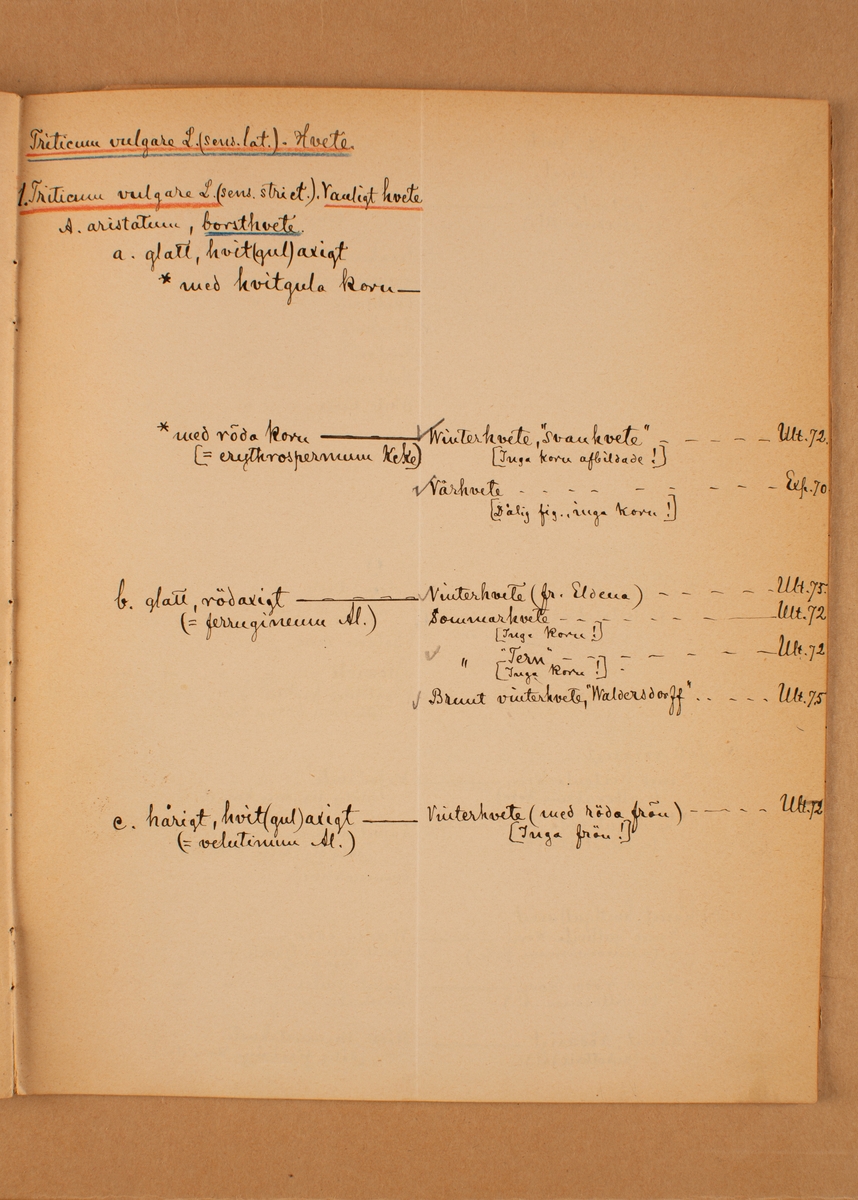 Triticum vulgare L.(sens.lat.)- Hvete.
1.Triticum vulgare L.(sens. strict.). Vanligt hvete
A. aristatum, borsthvete.
a. glatt, hvit(gul)axigt
* med hvitgula korn—
* med röda korn — Winterhvete, "Svanhvete" - - - - - Ult.72.
[= erythrospermum Kcke) [Inga korn afbildade!]
Vårhvete - - - - - - - - Exp.70
[Dålig fig., inga korn!]
b. glatt, rödaxigt — Vinterhvete (fr. Eldena) - - - - Ult.75.
(= ferrugineum Al.) Sommarhvete - - - - - - Ult.72
[Inga korn!]
" "Tern" - - - - - - Ult.72
[Inga korn!]
Brunt vinterhvete, "Waldersdorff" . . - - - Ult.75
c. hårigt, hvit(gul)axigt — Vinterhvete (med röda frön) - - - - Ult.72
(= velutinum Al.) [Inga frön!]